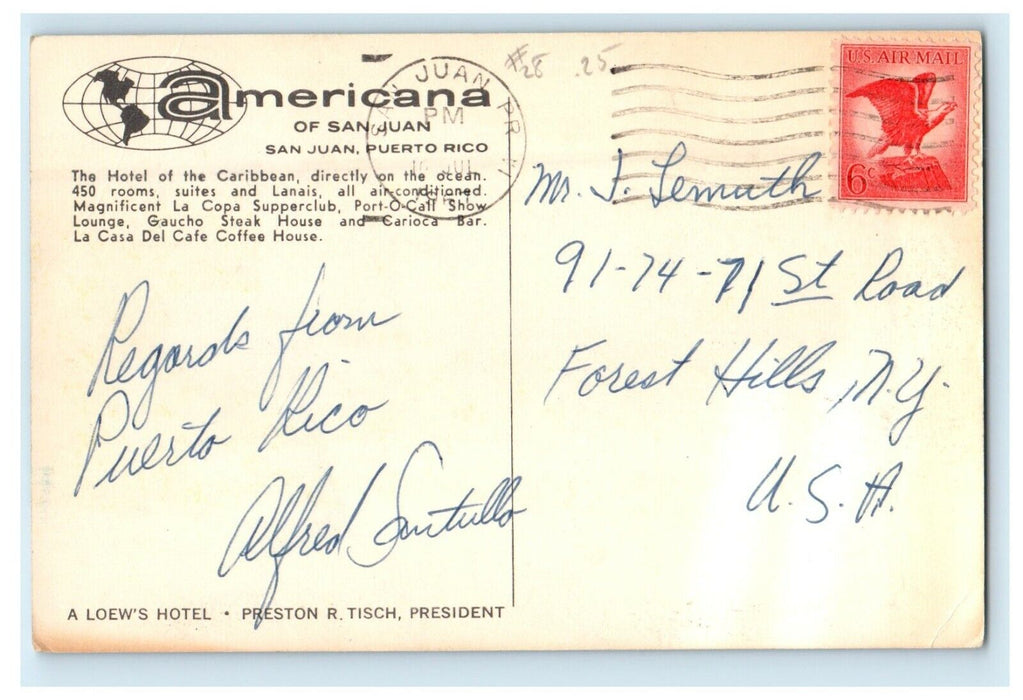 americana
OF SAN JUAN
SAN JUAN, PUERTO RICO
The Hotel of the Caribbean, directly on the ocean.
450 rooms, suites and Lanais, all air-conditioned.
Magnificent La Copa Supperclub, Port-O-Call Show
Lounge, Gaucho Steak House and Carioca Bar.
La Casa Del Cafe Coffee House.
Regards from
Puerto Rico
Alfred Santullo
A LOEW'S HOTEL • PRESTON R. TISCH, PRESIDENT
#28 .25
SAN JUAN, P.R.
PM
JUL
U.S. AIR MAIL
6c
Mr. J. Lemuth
91-74-71 St Road
Forest Hills, N.Y.
U.S.A.